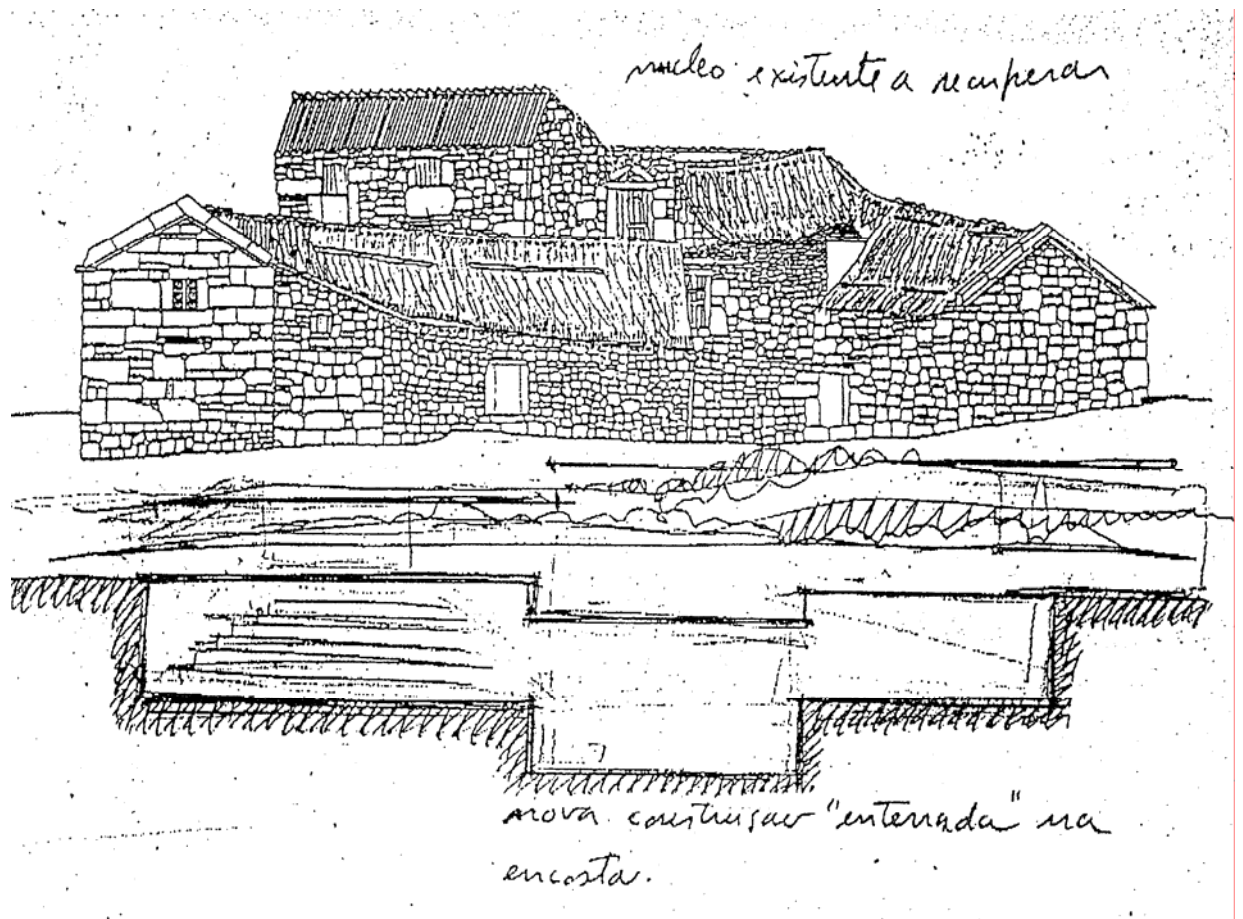 nucleo existente a recuperar
nova construçao "enterrada" na
encosta.